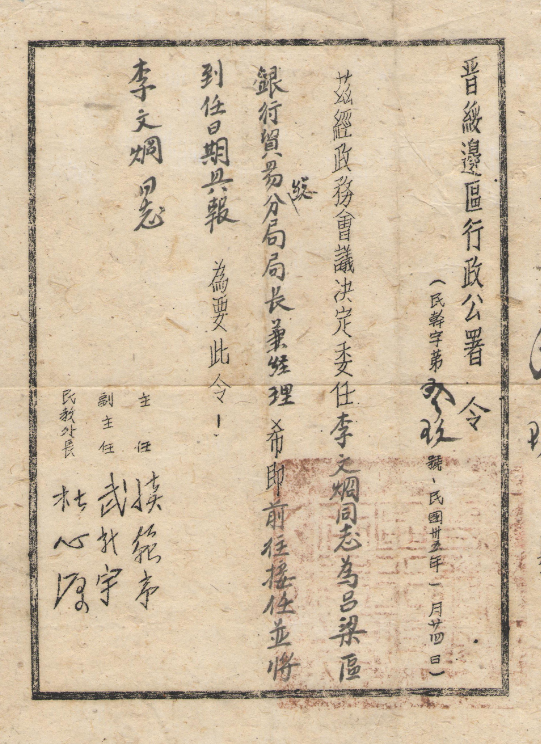 晋綏邊區行政公署 令
(民幹字第叁玖號、民國卅五年一月廿四日)
茲經政務會議決定委任李文炯同志為呂梁區
銀行貿易分局局長兼總經理希即前往接任並將
到任日期具報
為要此令!
李文炯同志
主任 續範亭
副主任 武新宇
民教處長 杜心源